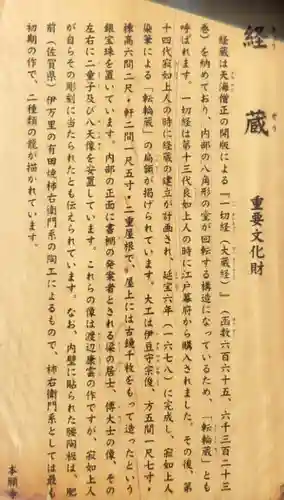 経蔵
きょう
ぞう
重要文化財
経蔵は天海僧正の開版による『一切経（大蔵経）』（函数六百六十五、六千三百二十三
巻）を納めており、内部の八角形の室が回転する構造になっているため、「転輪蔵」とも
呼ばれます。一切経は第十三代良如上人の時に江戸幕府から購入されました。その後、第
十四代寂如上人の時に経蔵の建立が計画され、延宝六年（一六七八）に完成し、寂如上人
染筆による「転輪蔵」の扁額が掲げられています。大工は伊豆守宗俊、方五間一尺七寸、
棟高六間二尺、軒二間一尺五寸、二重屋根で、屋上には古鏡千枚をもって造ったという
銀宝珠を置いています。内部の正面に書棚の発案者とされる梁の居士、傅大士の像、その
左右に二童子及び八天像を安置しています。これらの像は渡辺康雲の作ですが、寂如上人
が自らその彫刻に当たられたとも伝えられています。なお、内壁に貼られた腰陶板は、肥
前（佐賀県）伊万里の有田焼柿右衛門系の陶工によるもので、柿右衛門系としては最も
初期の作で、二種類の龍が描かれています。
本願寺